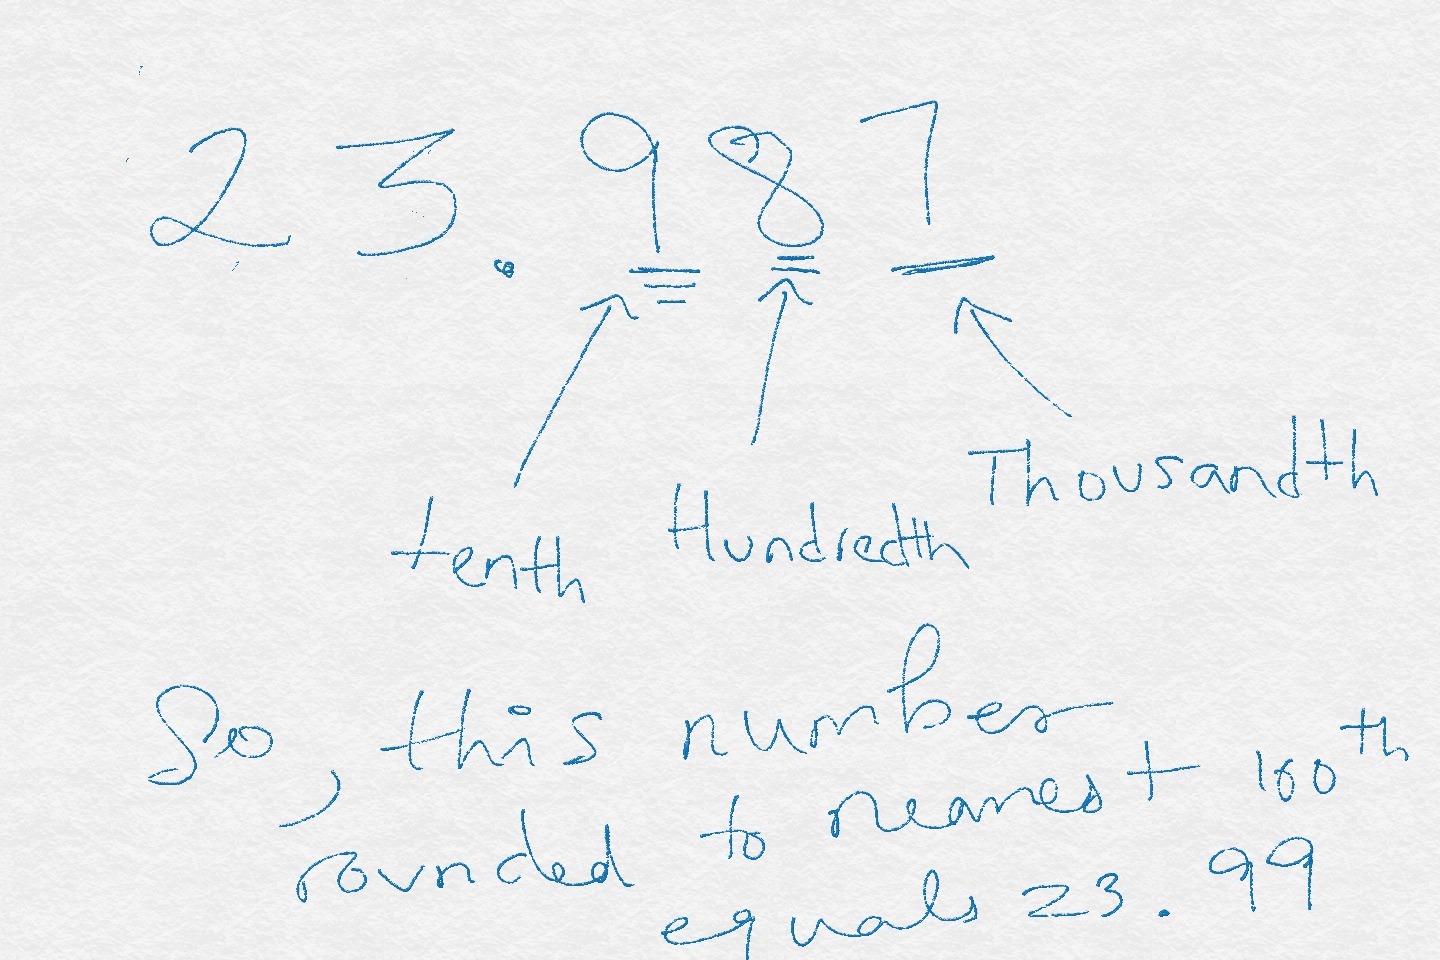 23.987
Thousandth
tenth Hundredth
So, this number
rounded to nearest 100th
equals 23.99